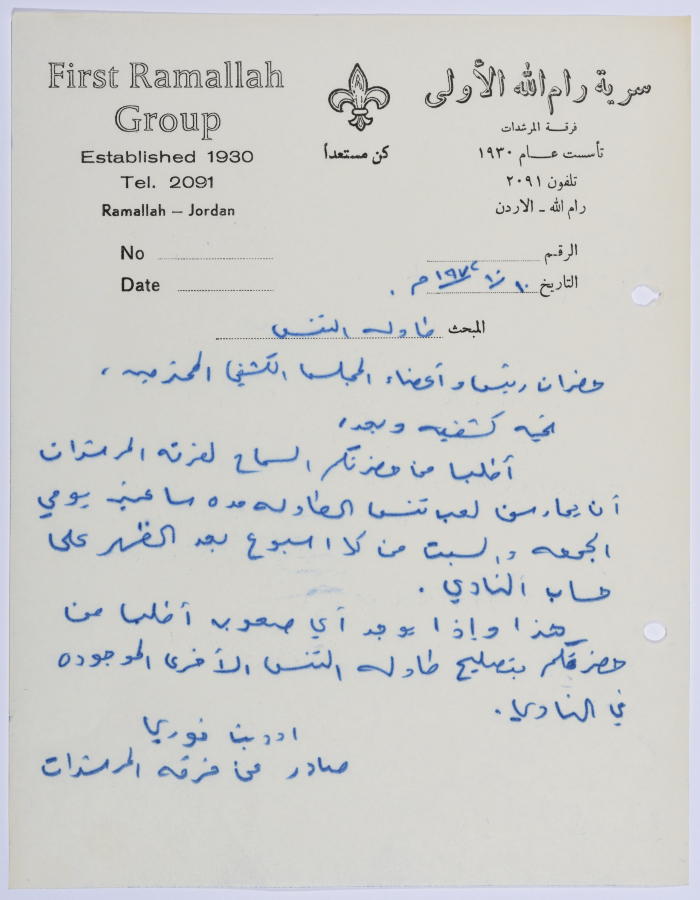 First Ramallah
Group
Established 1930
Tel. 2091
Ramallah – Jordan
No
Date
كن مستعداً
سرية رام الله الأولى
فرقة المرشدات
تأسست عام ١٩٣٠
تلفون ٢٠٩١
رام الله - الاردن
الرقم
التاريخ ١٠/١/١٩٧٤ م.
المبحث طاوله التنس
حضرات رئيس و أعضاء المجلس الكشفي المحترمين،
تحيه كشفيه وبعد،
أطلب من حضرتكم السماح لفرقه المرشدات
أن يمارسن لعب تنس الطاوله مده ساعتين يومي
الجمعه والسبت من كل اسبوع بعد الظهر على
حساب النادي.
هذا وإذا يوجد أي صعوبه أطلب من
حضرتكم بتصليح طاوله التنس الأخرى الموجوده
في النادي.
فوري
صادر عن فرقه المرشدات